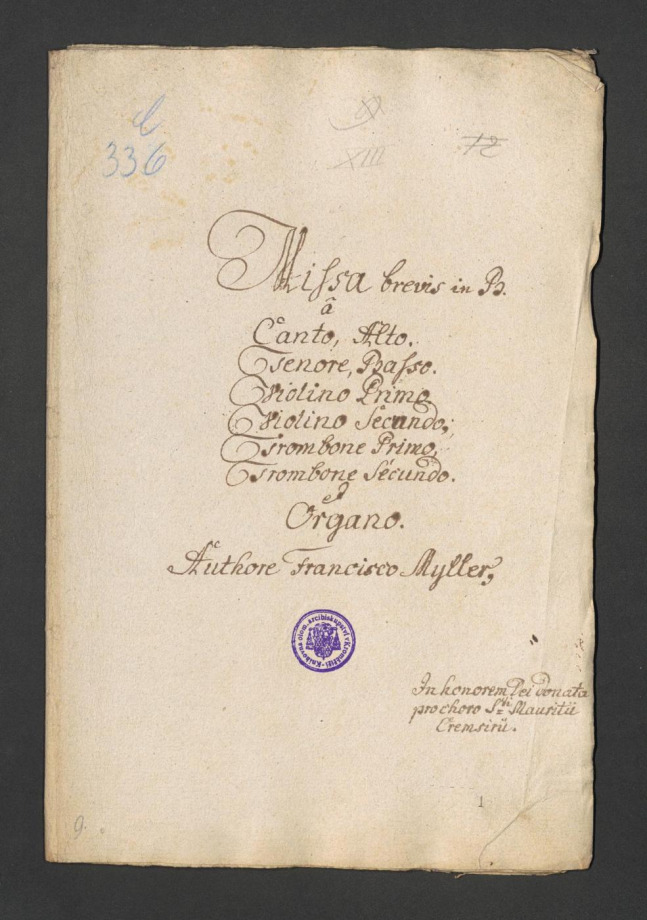 C
336
XIII
12
Missa brevis in B.
â
Canto, Alto.
Tenore, Basso.
Violino Primo
Violino Secundo,
Trombone Primo,
Trombone Secundo.
et
Organo.
Authore Francisco Myller,
Knihovna olom. arcibiskupství v Kroměříži
In honorem Dei donata
pro choro Sti Mauritii
Cremsirii.
1
9.